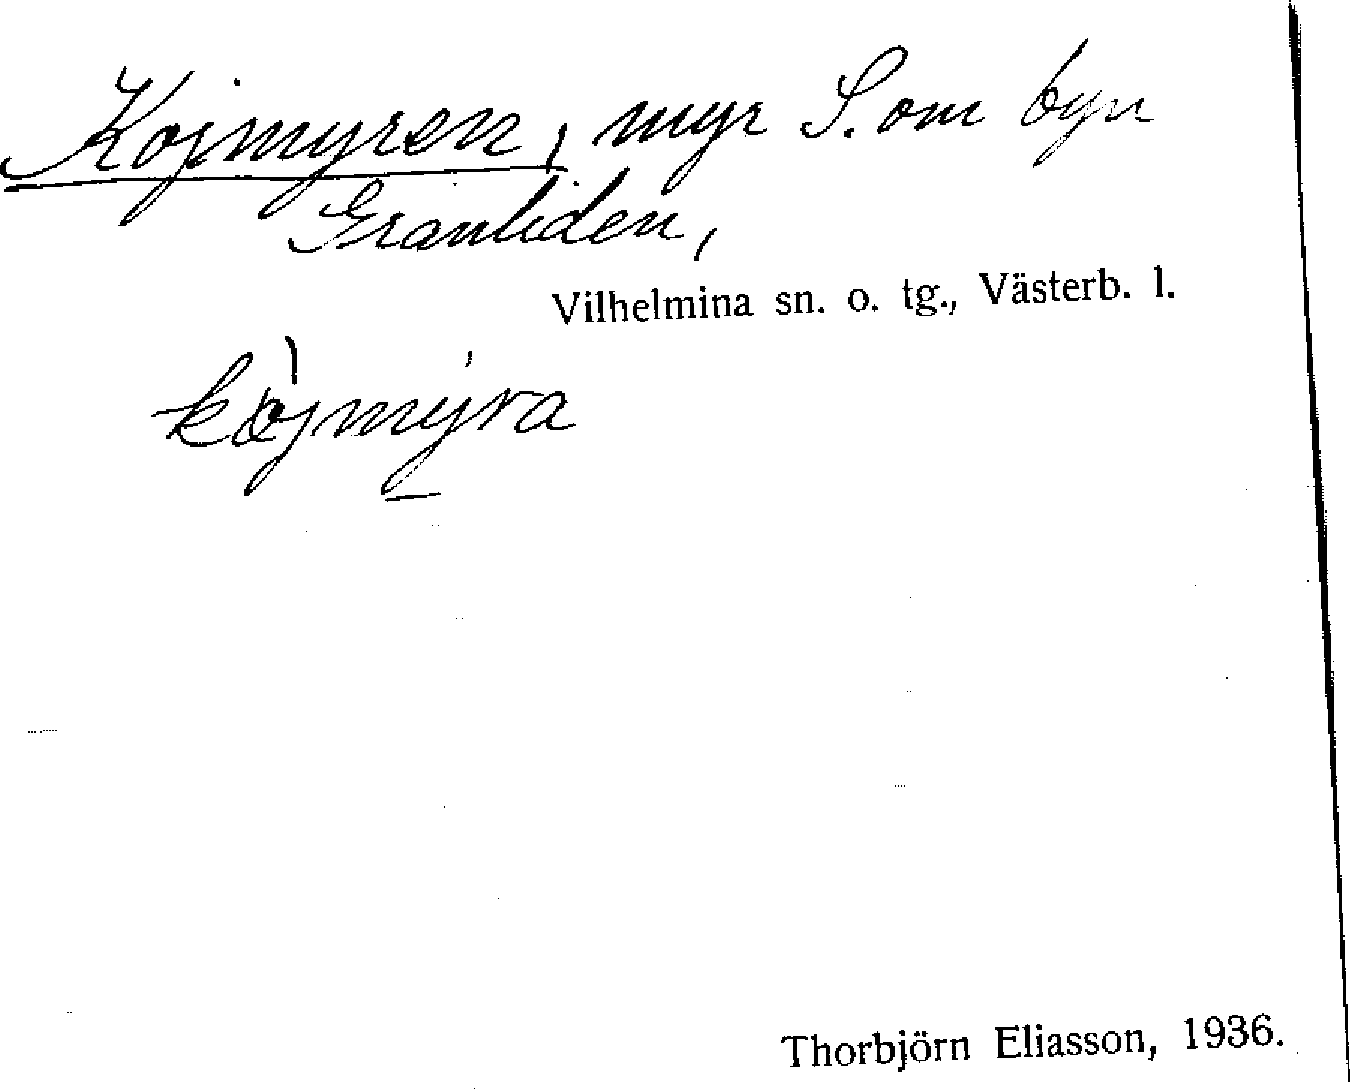 Kojmyren, myr S. om byn
Granliden,
Vilhelmina sn. o. tg., Västerb. l.
kòjmýra
Thorbjörn Eliasson, 1936.